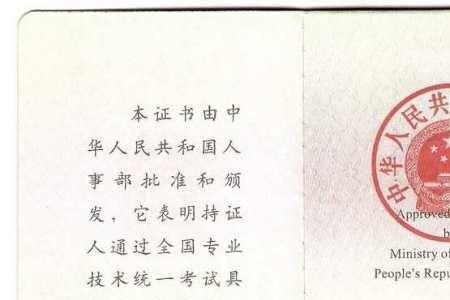 本证书由中
华人民共和国人
事部批准和颁
发，它表明持证
人通过全国专业
技术统一考试具
中华人民共
Approved
b
Ministry of
People's Repu